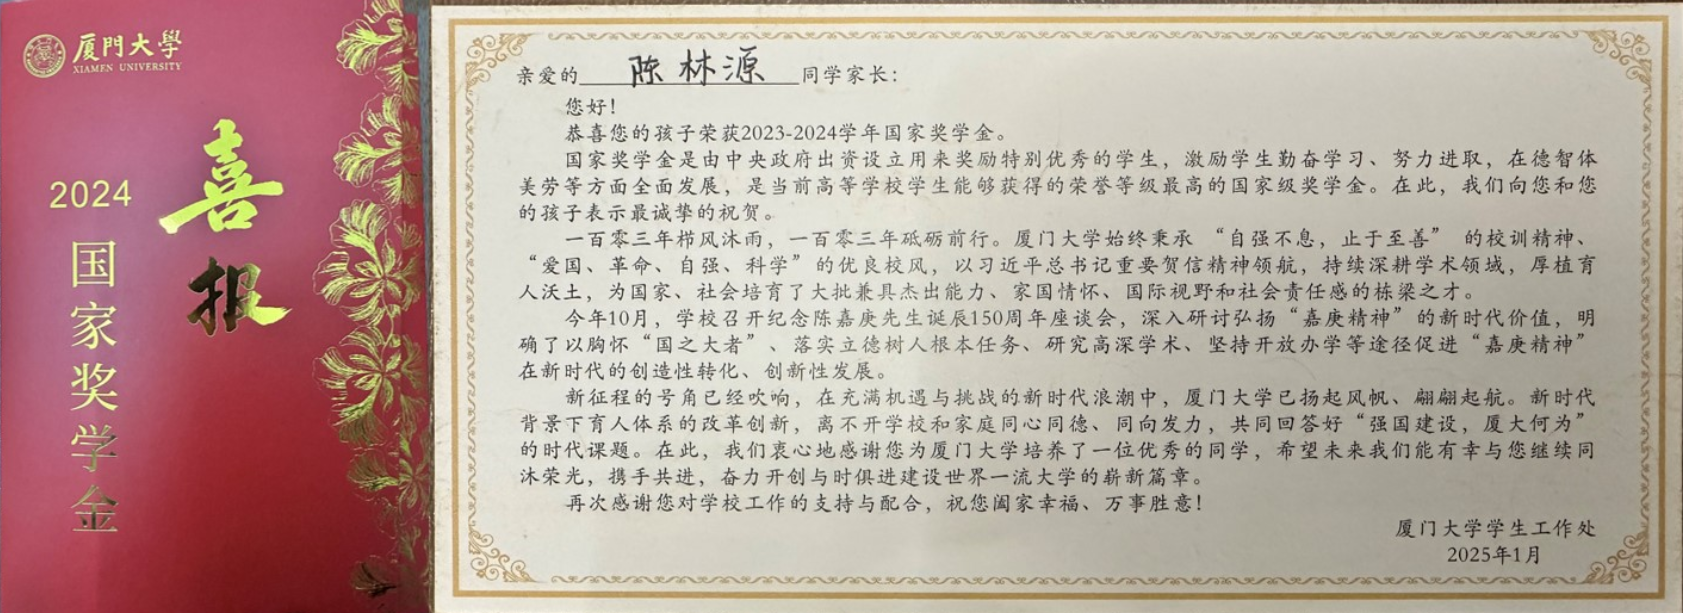 厦門大學
XIAMEN UNIVERSITY
喜报
2024
国家奖学金
亲爱的 陈林源 同学家长：
您好！
恭喜您的孩子荣获2023-2024学年国家奖学金。
国家奖学金是由中央政府出资设立用来奖励特别优秀的学生，激励学生勤奋学习、努力进取，在德智体
美劳等方面全面发展，是当前高等学校学生能够获得的荣誉等级最高的国家级奖学金。在此，我们向您和您
的孩子表示最诚挚的祝贺。
一百零三年栉风沐雨，一百零三年砥砺前行。厦门大学始终秉承 “自强不息，止于至善” 的校训精神、
“爱国、革命、自强、科学”的优良校风，以习近平总书记重要贺信精神领航，持续深耕学术领域，厚植育
人沃土，为国家、社会培育了大批兼具杰出能力、家国情怀、国际视野和社会责任感的栋梁之才。
今年10月，学校召开纪念陈嘉庚先生诞辰150周年座谈会，深入研讨弘扬“嘉庚精神”的新时代价值，明
确了以胸怀“国之大者”、落实立德树人根本任务、研究高深学术、坚持开放办学等途径促进“嘉庚精神”
在新时代的创造性转化、创新性发展。
新征程的号角已经吹响，在充满机遇与挑战的新时代浪潮中，厦门大学已扬起风帆、翩翩起航。新时代
背景下育人体系的改革创新，离不开学校和家庭同心同德、同向发力，共同回答好“强国建设，厦大何为”
的时代课题。在此，我们衷心地感谢您为厦门大学培养了一位优秀的同学，希望未来我们能有幸与您继续同
沐荣光，携手共进，奋力开创与时俱进建设世界一流大学的崭新篇章。
再次感谢您对学校工作的支持与配合，祝您阖家幸福、万事胜意！
厦门大学学生工作处
2025年1月